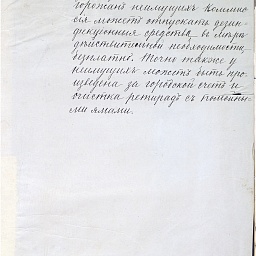 горожанъ неимущихъ Коммис
сія можетъ отпускать дезин
фекціонныя средства, въ мѣрѣ
дѣйствительной необходимости,
безплатно. Точно также у
неимущихъ можетъ быть про
изведена за городской счетъ и
очистка ретирадъ съ помойны
ми ямами.